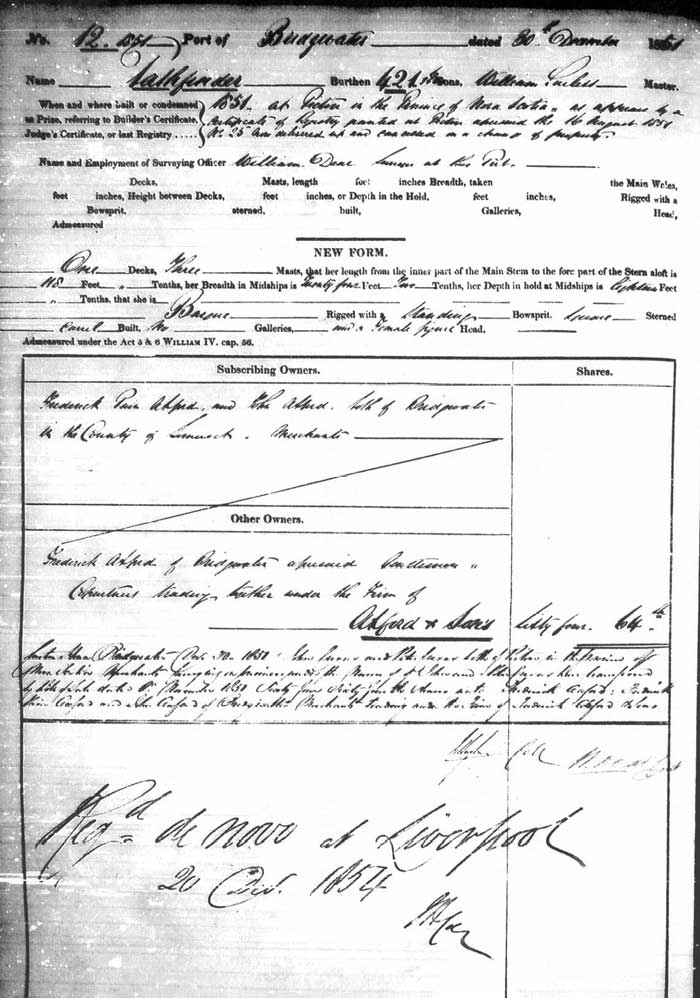 No. 12. 1851 Port of Bridgwater dated 30th December 1851
Name Pathfinder Burthen 421 Tons, William Master.
When and where built or condemned 1851. at Pictou in the Province of Nova Scotia, as appears by a
as Prize, referring to Builder's Certificate, Certificate of Registry granted at Pictou aforesaid the 16 August 1851
Judge's Certificate, or last Registry ..... No. 25 now delivered up and cancelled on a change of property.
Name and Employment of Surveying Officer William Dear at this Port.
Decks, Masts, length feet inches Breadth, taken the Main Wales,
feet inches, Height between Decks, feet inches, or Depth in the Hold, feet inches, Rigged with a
Bowsprit, sterned, built, Galleries, Head,
Admeasured
NEW FORM.
One Decks, Three Masts, that her length from the inner part of the Main Stem to the fore part of the Stern aloft is
118 Feet " Tenths, her Breadth in Midships is Twenty four Feet Two Tenths, her Depth in hold at Midships is Eighteen Feet
" Tenths, that she is Barque Rigged with a Standing Bowsprit. Square Sterned
Carvel Built, No Galleries, and a Female figure Head,
Admeasured under the Act 5 & 6 WILLIAM IV. cap. 56.
Subscribing Owners. Shares.
Frederick Axford, and John Axford. both of Bridgwater
in the County of Somerset. Merchants
Other Owners.
Frederick Axford of Bridgwater aforesaid Gentleman
Copartners trading together under the Firm of
Axford & Sons Sixty four. 64th
Bridgwater 30. John and both of Pictou in the Province of
Nova Scotia Merchants the Name of and have transferred
by Bill of Sale dated November Sixty four Sixty fourth Shares unto Frederick Axford, Frederick
Axford and John Axford of Bridgwater Merchants trading under the Firm of Frederick Axford & Sons
Coll
Regd de novo at Liverpool
20 Dec. 1854